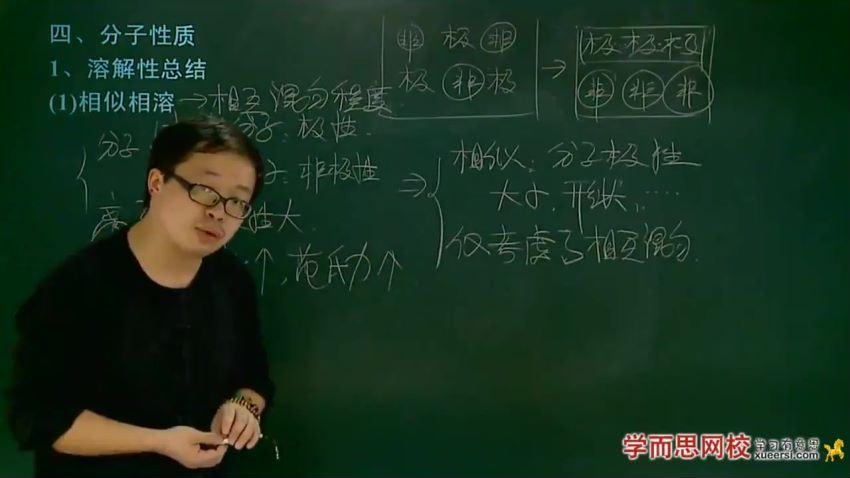 四、分子性质
1、溶解性总结
(1)相似相溶 →相互混匀程度
分子
极性.
非极性
性大
↑,范氏力↑
非 极 非
极 非 极
→
极·极·极
非 非 非
⇒
相似:分子极性
大小,形状,……
仅考虑了相互混匀.
学而思网校
学习有意思
xueersi.com